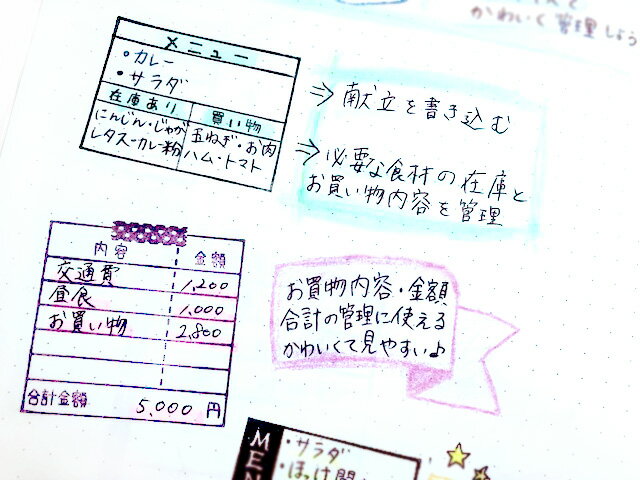 かわいく管理しよう
メニュー
・カレー
・サラダ
在庫あり 買い物
にんじん・じゃが 玉ねぎ・お肉
レタス・カレー粉 ハム・トマト
⇒ 献立を書き込む
⇒ 必要な食材の在庫と
お買い物内容を管理
内容 金額
交通費 1,200
昼食 1,000
お買い物 2,800
合計金額 5,000 円
お買物内容・金額
合計の管理に使える
かわいくて見やすい♪
MEN
・サラダ
・ほっけ開